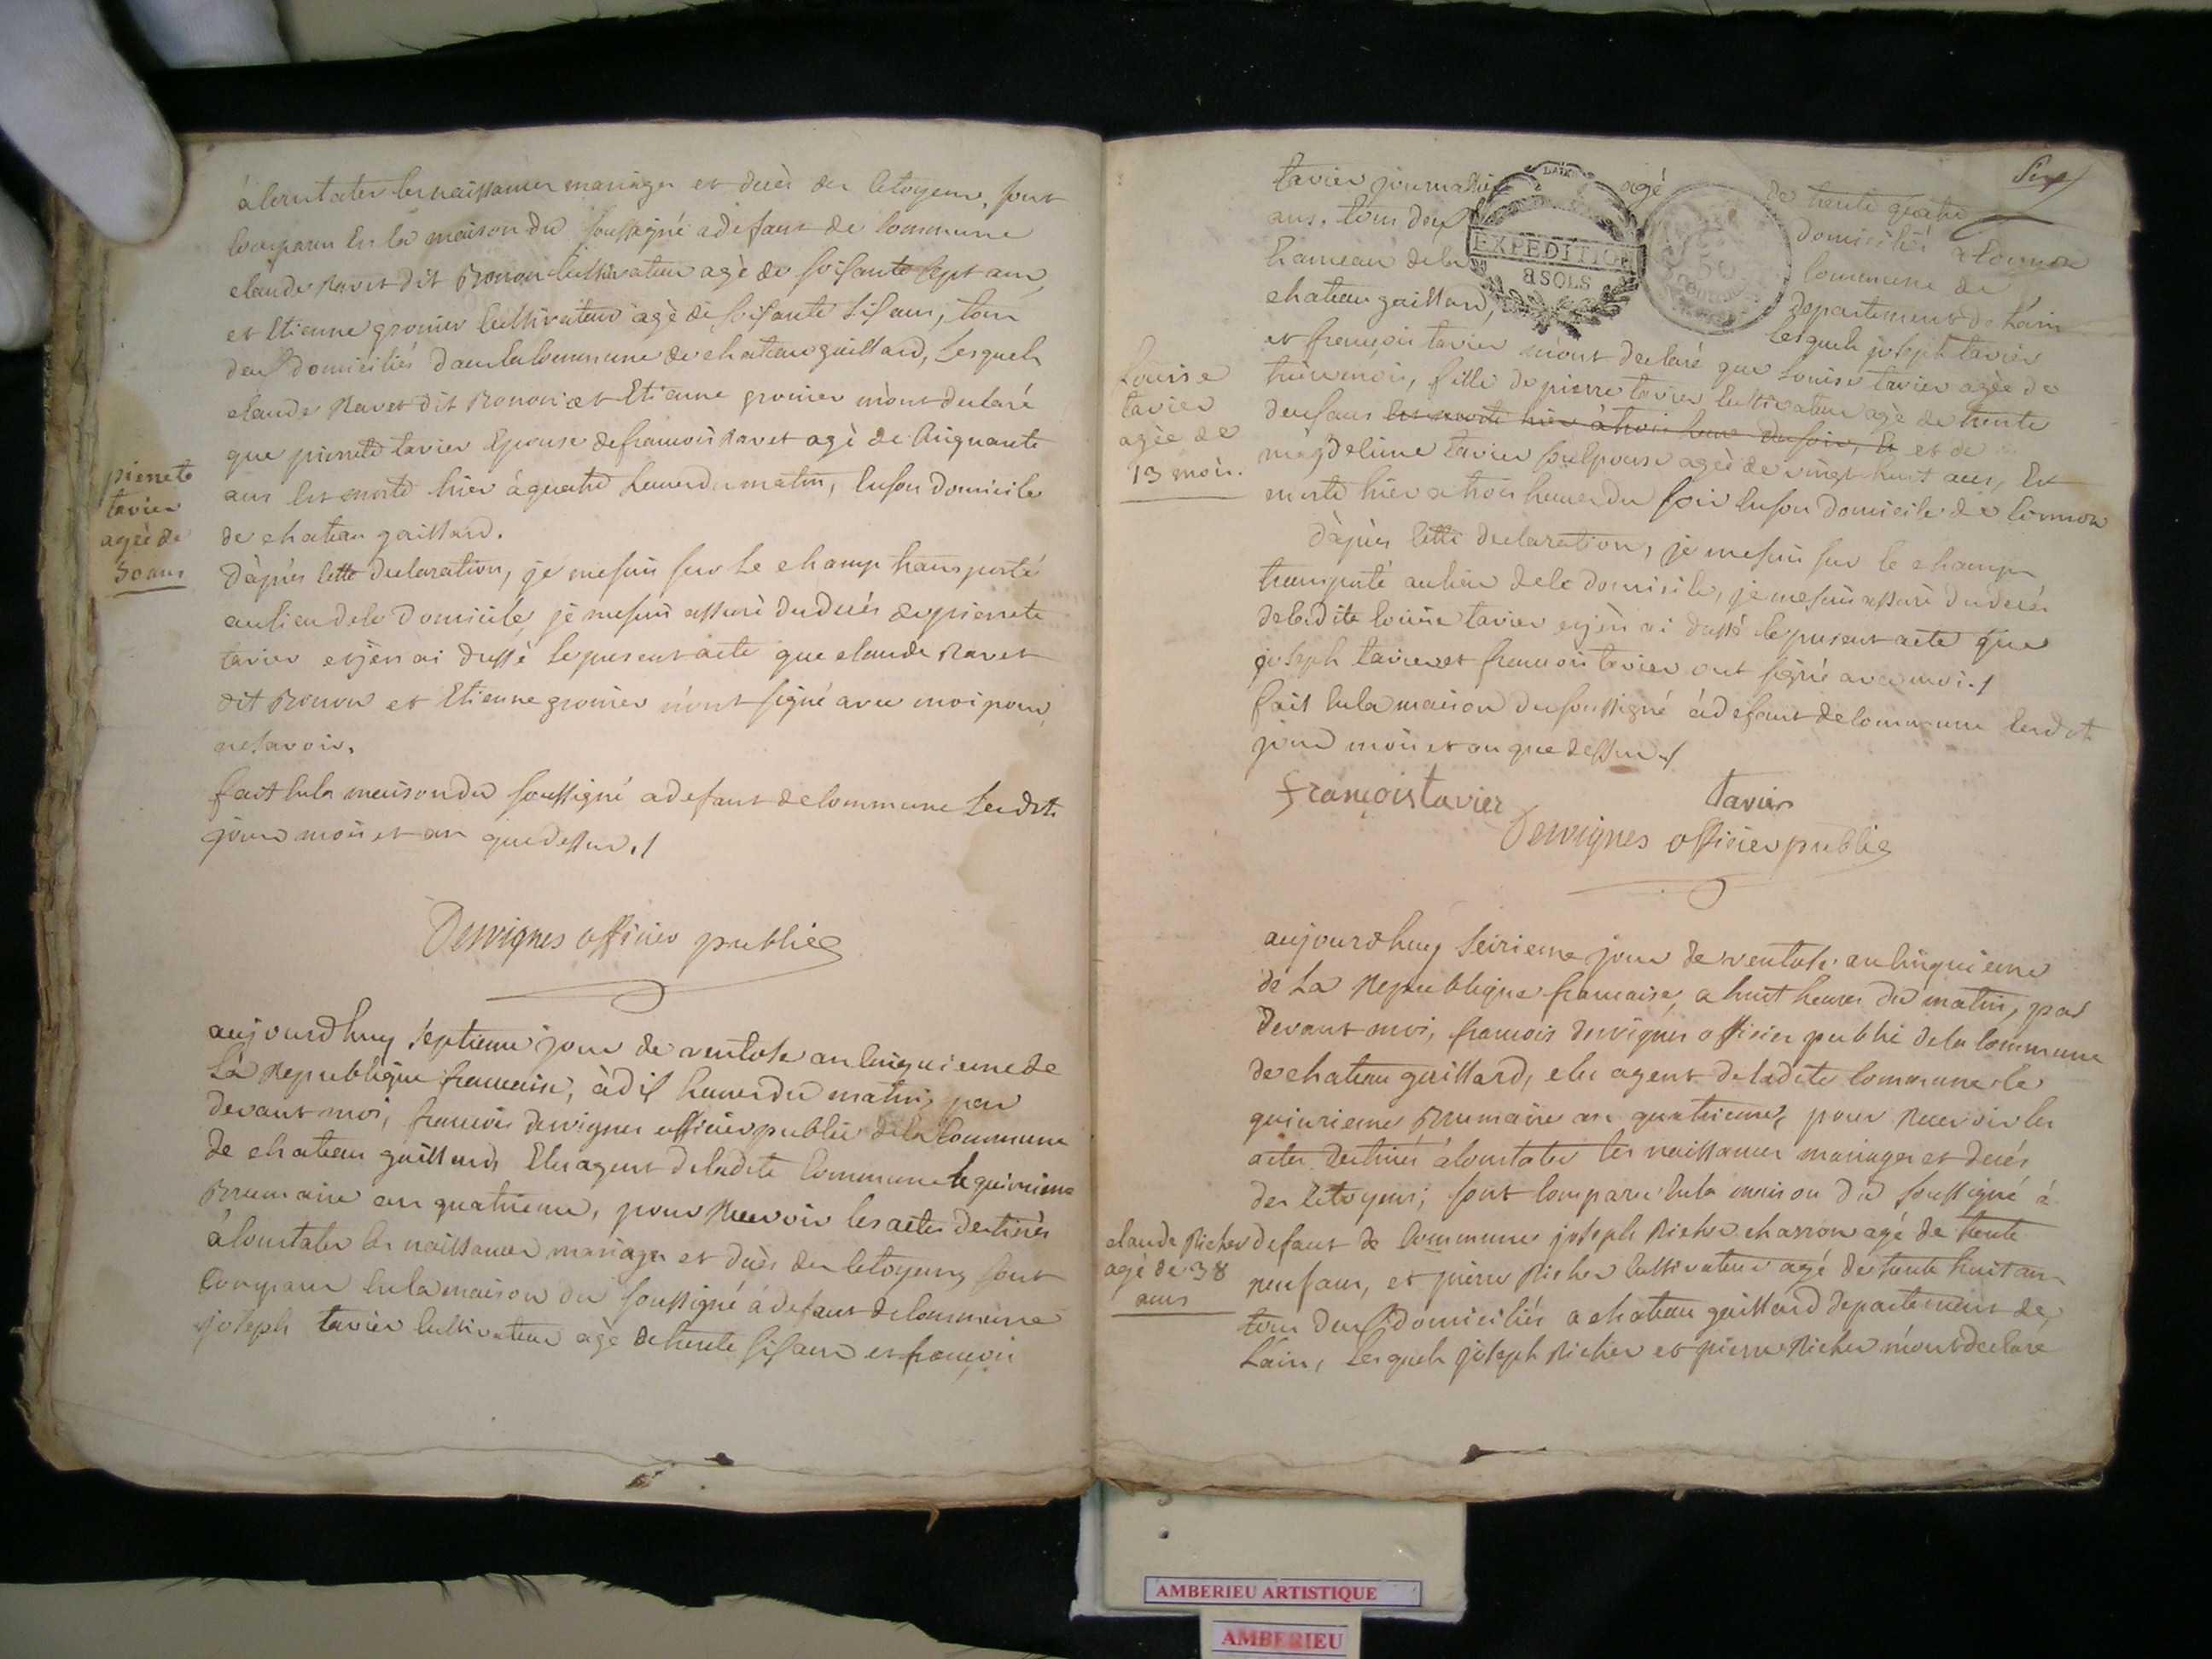 àConstater les naissances mariages et décès des Citoyens, sont
Comparus En la maison du soussigné adefaut de Commune
claude Ravet dit Bonon Cultivateur agè de soisante sept ans,
et Etienne gronier Cultivateur agè de soisante sis ans, tous
deux domiciliés dans la Commune de chateau gaillard, Lesquels
claude Ravet dit Bonon et Etienne gronier m'ont declaré
que pierrete tavier Epouse de francois Ravet agè de Cinquante
ans Est morte hier à quatre heures du matin, En son domicile
de chateau gaillard.
D'après Cette declaration, je me suis sur Le champ transporté
au lieu de ce domicile, je me suis assuré du decès de pierrete
tavier et j'en ai dressé Le present acte que claude Ravet
dit Bonon et Etienne gronier n'ont signé avec moi pour
ne savoir.
fait En la maison du soussigné a defaut de Commune Les dits
jour mois et an que dessus./
pierrete
tavier
agèe de
50 ans
Dervignes officier public
aujourdhuy septieme jour de ventose an Cinquieme de
La Republique francaise, à dix heures du matin, par
devant moi, francois dervignes officier public de la Commune
de chateau gaillard, Elu agent de ladite Commune le quinzieme
Brumaire an quatrieme, pour Recevoir les actes destinés
à Constater les naissances mariages et decès des Citoyens, sont
Comparus En la maison du soussigné à defaut de Commune
joseph tavier Cultivateur agè de trente sis ans et francois
Six
tavier journalier agé de trente quatre
ans, tous deux domiciliés a Cormoz
hameau de la Commune de
chateau gaillard, Departement de Lain
Lesquels joseph tavier
et francois tavier m'ont declaré que Louise tavier agèe de
treize mois, fille de pierre tavier Cultivateur agè de trente
deux ans Est morte hier à trois heures du soir, En et de
magdeleine tavier son Epouse agèe de vingt huit ans, Est
morte hier a trois heures du soir En son domicile de Cormoz
D'après Cette declaration, je me suis sur le champ
transporté au lieu de ce domicile, je me suis assuré du decès
de ladite Louise tavier et j'en ai dressé le present acte que
joseph tavier et francois tavier ont signé avec moi./
fait En la maison du soussigné à defaut de Commune Les dits
jour mois et an que dessus./
Louise
tavier
agèe de
13 mois.
EXPEDITION
8 SOLS
françois tavier tavier
Dervignes officier public
aujourdhuy seizieme jour de ventose an Cinquieme
de La Republique francaise, a huit heures du matin, par
devant moi, francois dervignes officier public de la Commune
de chateau gaillard, elu agent de ladite Commune le
quinzieme Brumaire an quatrieme, pour Recevoir les
actes destinés à Constater les naissances mariages et decès
des Citoyens, sont Comparu En la maison du soussigné à
defaut de Commune joseph Richer charron agé de trente
neuf ans, et pierre Richer Cultivateur agé de trente huit ans
tous deux domiciliés a chateau gaillard departement de
Lain, Lesquels joseph Richer et pierre Richer m'ont declaré
claude Richer
agé de 38
ans
AMBERIEU ARTISTIQUE
AMBERIEU